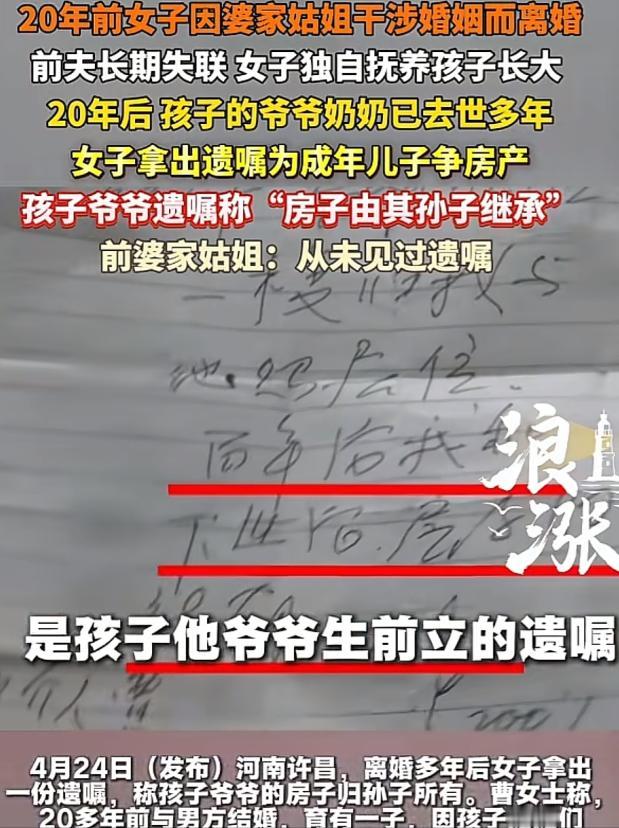 20年前女子因婆家姑姐干涉婚姻而离婚
前夫长期失联 女子独自抚养孩子长大
20年后 孩子的爷爷奶奶已去世多年
女子拿出遗嘱为成年儿子争房产
孩子爷爷遗嘱称“房子由其孙子继承”
前婆家姑姐：从未见过遗嘱
一楼归我与
居住
百年后我
下世后.房
浪
涨
是孩子他爷爷生前立的遗嘱
2007
4月24日（发布）河南许昌，离婚多年后女子拿出
一份遗嘱，称孩子爷爷的房子归孙子所有。曹女士称，
20多年前与男方结婚，育有一子，因孩子 们